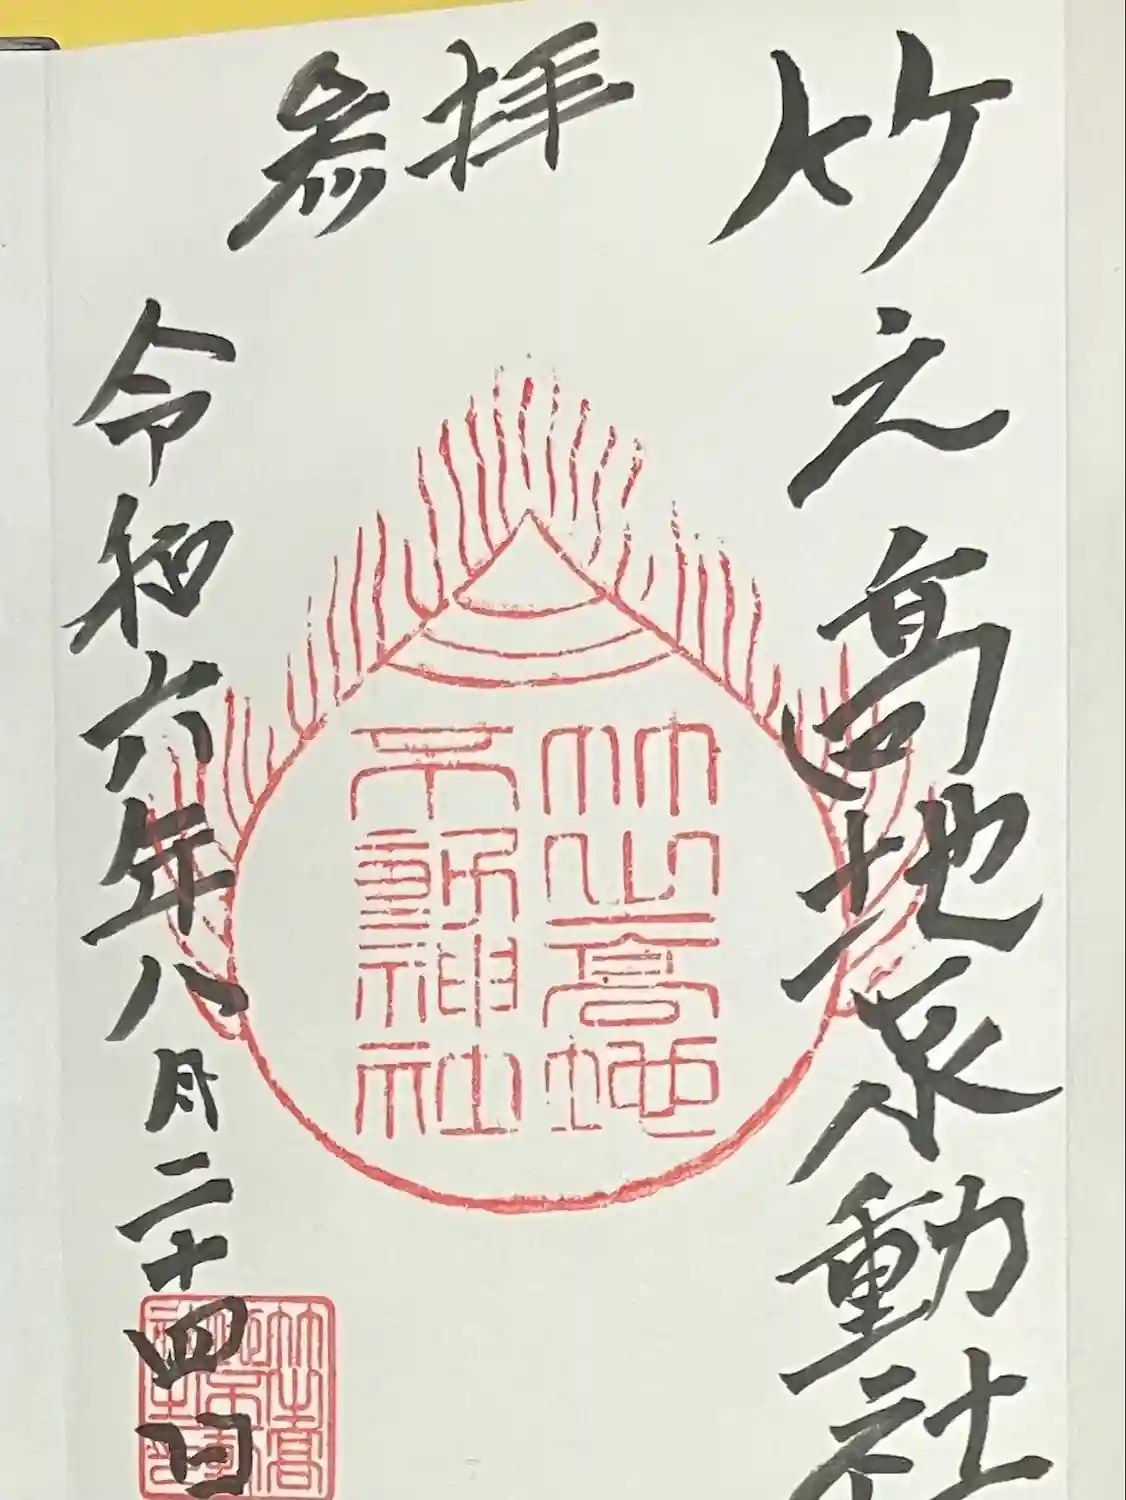 竹之高地不動社
拝参
竹之高地
不動神社
令和六年八月二十四日
竹之高
地不動